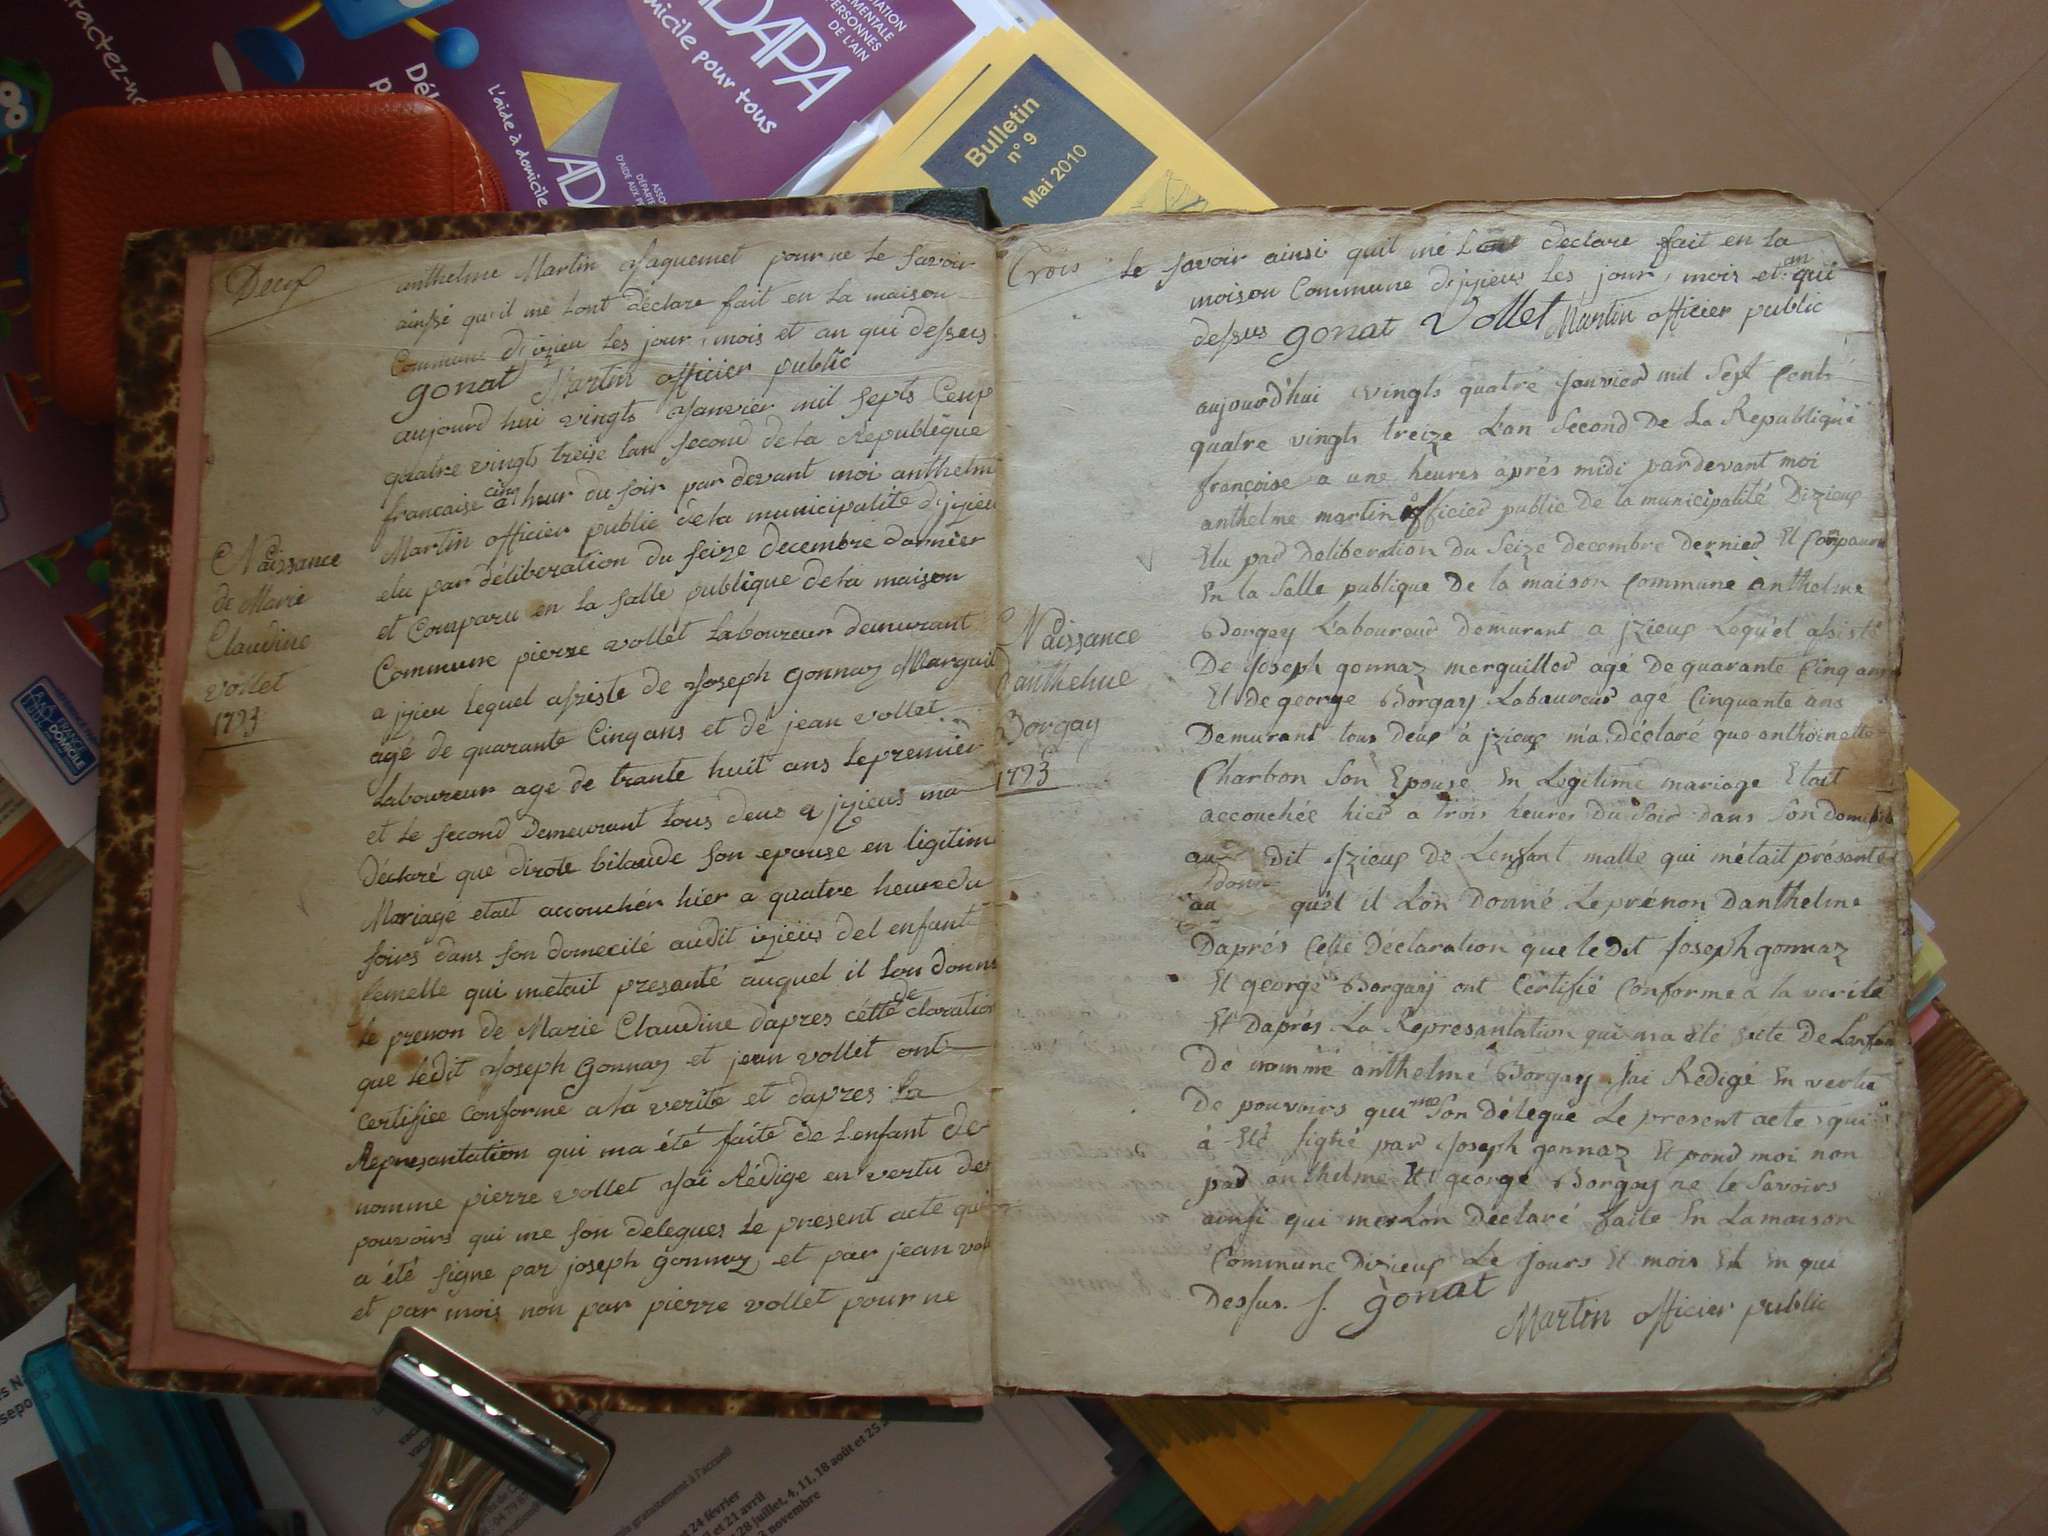 ADAPA
micile pour tous
L'aide à domicile
Bulletin
n° 9
Mai 2010
Deux
anthelme Martin Jaquemet pour ne le savoir
ainssi qu'il me lont déclare fait en la maison
Commune d'izieu les jour, mois et an qui dessus
gonat Martin officier public
aujourd hui vingts Janvier mil septs Cenp
quatre vingts treise lan second de la République
francaise a cinq heur du soir par devant moi anthelme
Martin officier public de la municipalité d'izieu
elu par déliberation du seize decembre darnier
et Comparu en la salle publique de la maison
Commune pierre vollet Laboureur demurant
a jzieu lequel assiste de Joseph gonnaz Marguil
agé de quarante Cinq ans et de jean vollet
Laboureur age de trante huit ans le premier
et le second demeurant tous deux a jzieus ma
Déclaré que dirote bilaude son epouse en ligitim
Mariage etait accouchér hier a quatre heure du
soirs dans son domecile audit izieus del enfant
femelle qui metait presanté auquel il lon donné
le prenon de Marie Claudine dapres cétte de claration
que ledit Joseph Gonnaz et jean vollet ont
certifiee conforme a la verite et dapres la
Represantation qui ma été faite de lenfant de
nomme pierre vollet Jai Rédige en vertu de
pouvoirs qui me son delegues le present acte qui
a été signe par joseph gonnaz et par jean vol
et par mois non par pierre vollet pour ne
Naissance
de Marie
Claudine
vollet
1793
Trois
le savoir ainsi quil mé lont declare fait en la
moison Commune dizieus les jour, mois et an qui
dessus gonat Vollet Martin officier public
aujourd'hui vingts quatre Janvier mil Sept Cents
quatre vingts treize L'an Second De La Republique
françoise a une heures après midi pardevant moi
anthelme martin officier public De la municipalité Dizieux
Elu par Deliberation Du Seize Decembre Dernier Et Comparu
En la Salle publique De la maison Commune anthelme
Borgey Laboureur Demurant a jzieux Lequel assisté
De Joseph gonnaz merguiller agé De quarante Cinq ans
Et de george Borgay Laboureur agé Cinquante ans
Demurant tous Deux à jzieux m'a Déclaré que anthoinette
Charbon Son Epouse En Legitime mariage Etait
accouchée hier a trois heures Du Soir Dans Son domicile
au dit Jzieux De Lenfant malle qui métait présanté
au quel il Lon Donné Le prénon Danthelme
Daprés Cette Déclaration que ledit Joseph gonnaz
Et george Borgay ont Certifié Conforme a la verité
Et Daprés La Represantation qui ma été faite De Lanfan
De nommé anthelme Borgay Jai Redigé En vertu
De pouvoirs qui me Son Délegué Le present acte qui
à Eté signé par Joseph gonnaz Et pard moi non
par anthelme Et george Borgay ne le Savoirs
ainsi qui mes Lon Déclaré faite En La maison
Commune Dizieux Le jours Et mois Et En qui
Dessus. J. gonat
Martin officier public
Naissance
Danthelme
Borgay
1793
gratuitement à l'accueil
24 février
et 21 avril
28 juillet, 4, 11, 18 août et 25
novembre